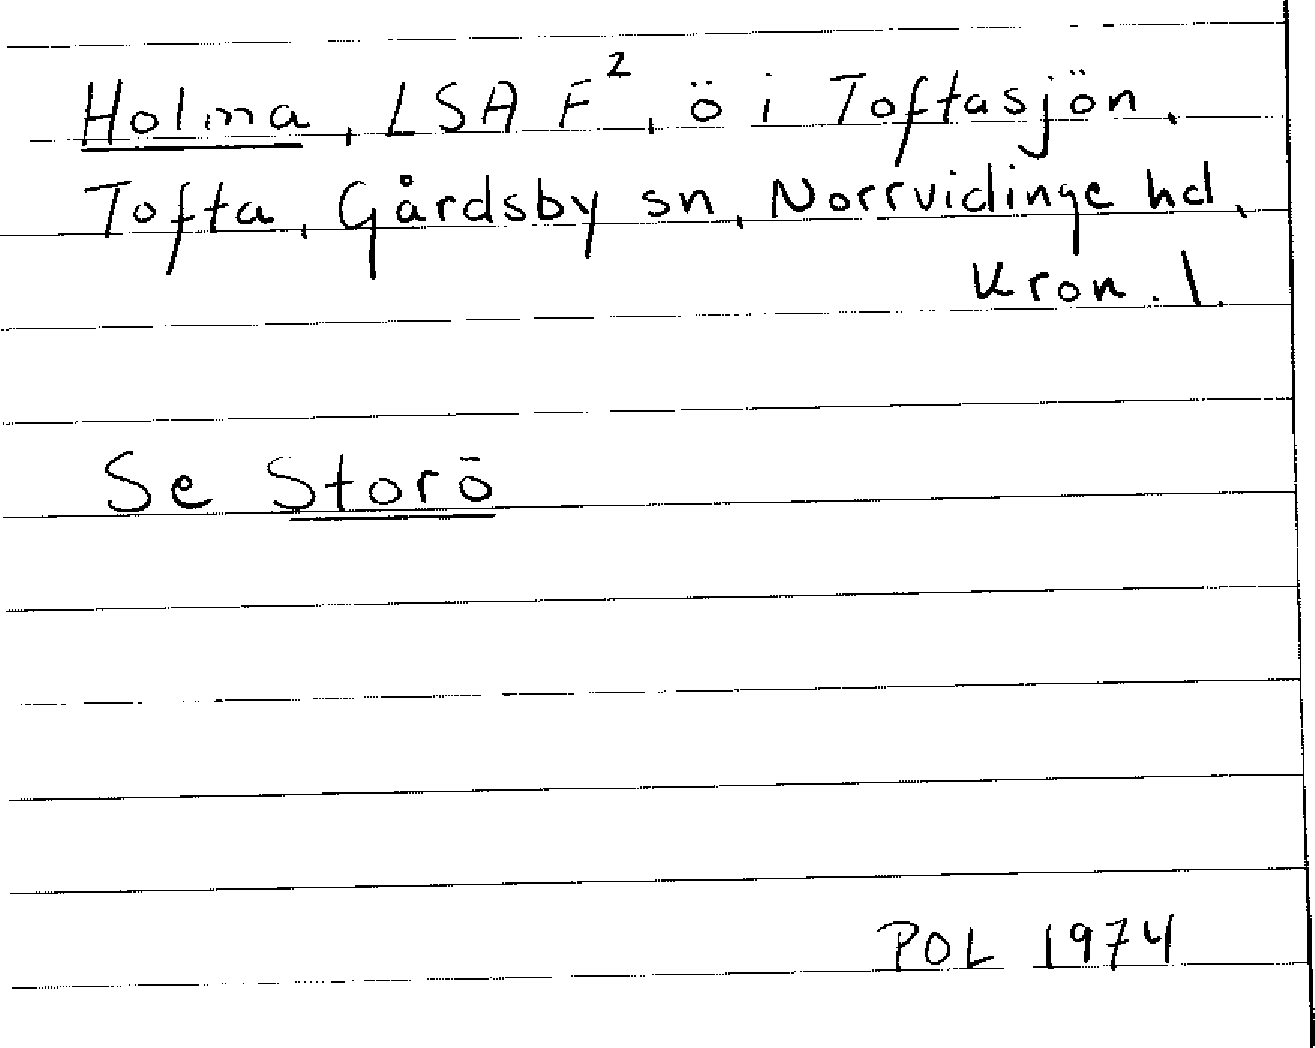 Holma, LSA F², ö i Toftasjön,
Tofta, Gårdsby sn, Norrvidinge hd,
Kron. l.
Se Storö
POL 1974